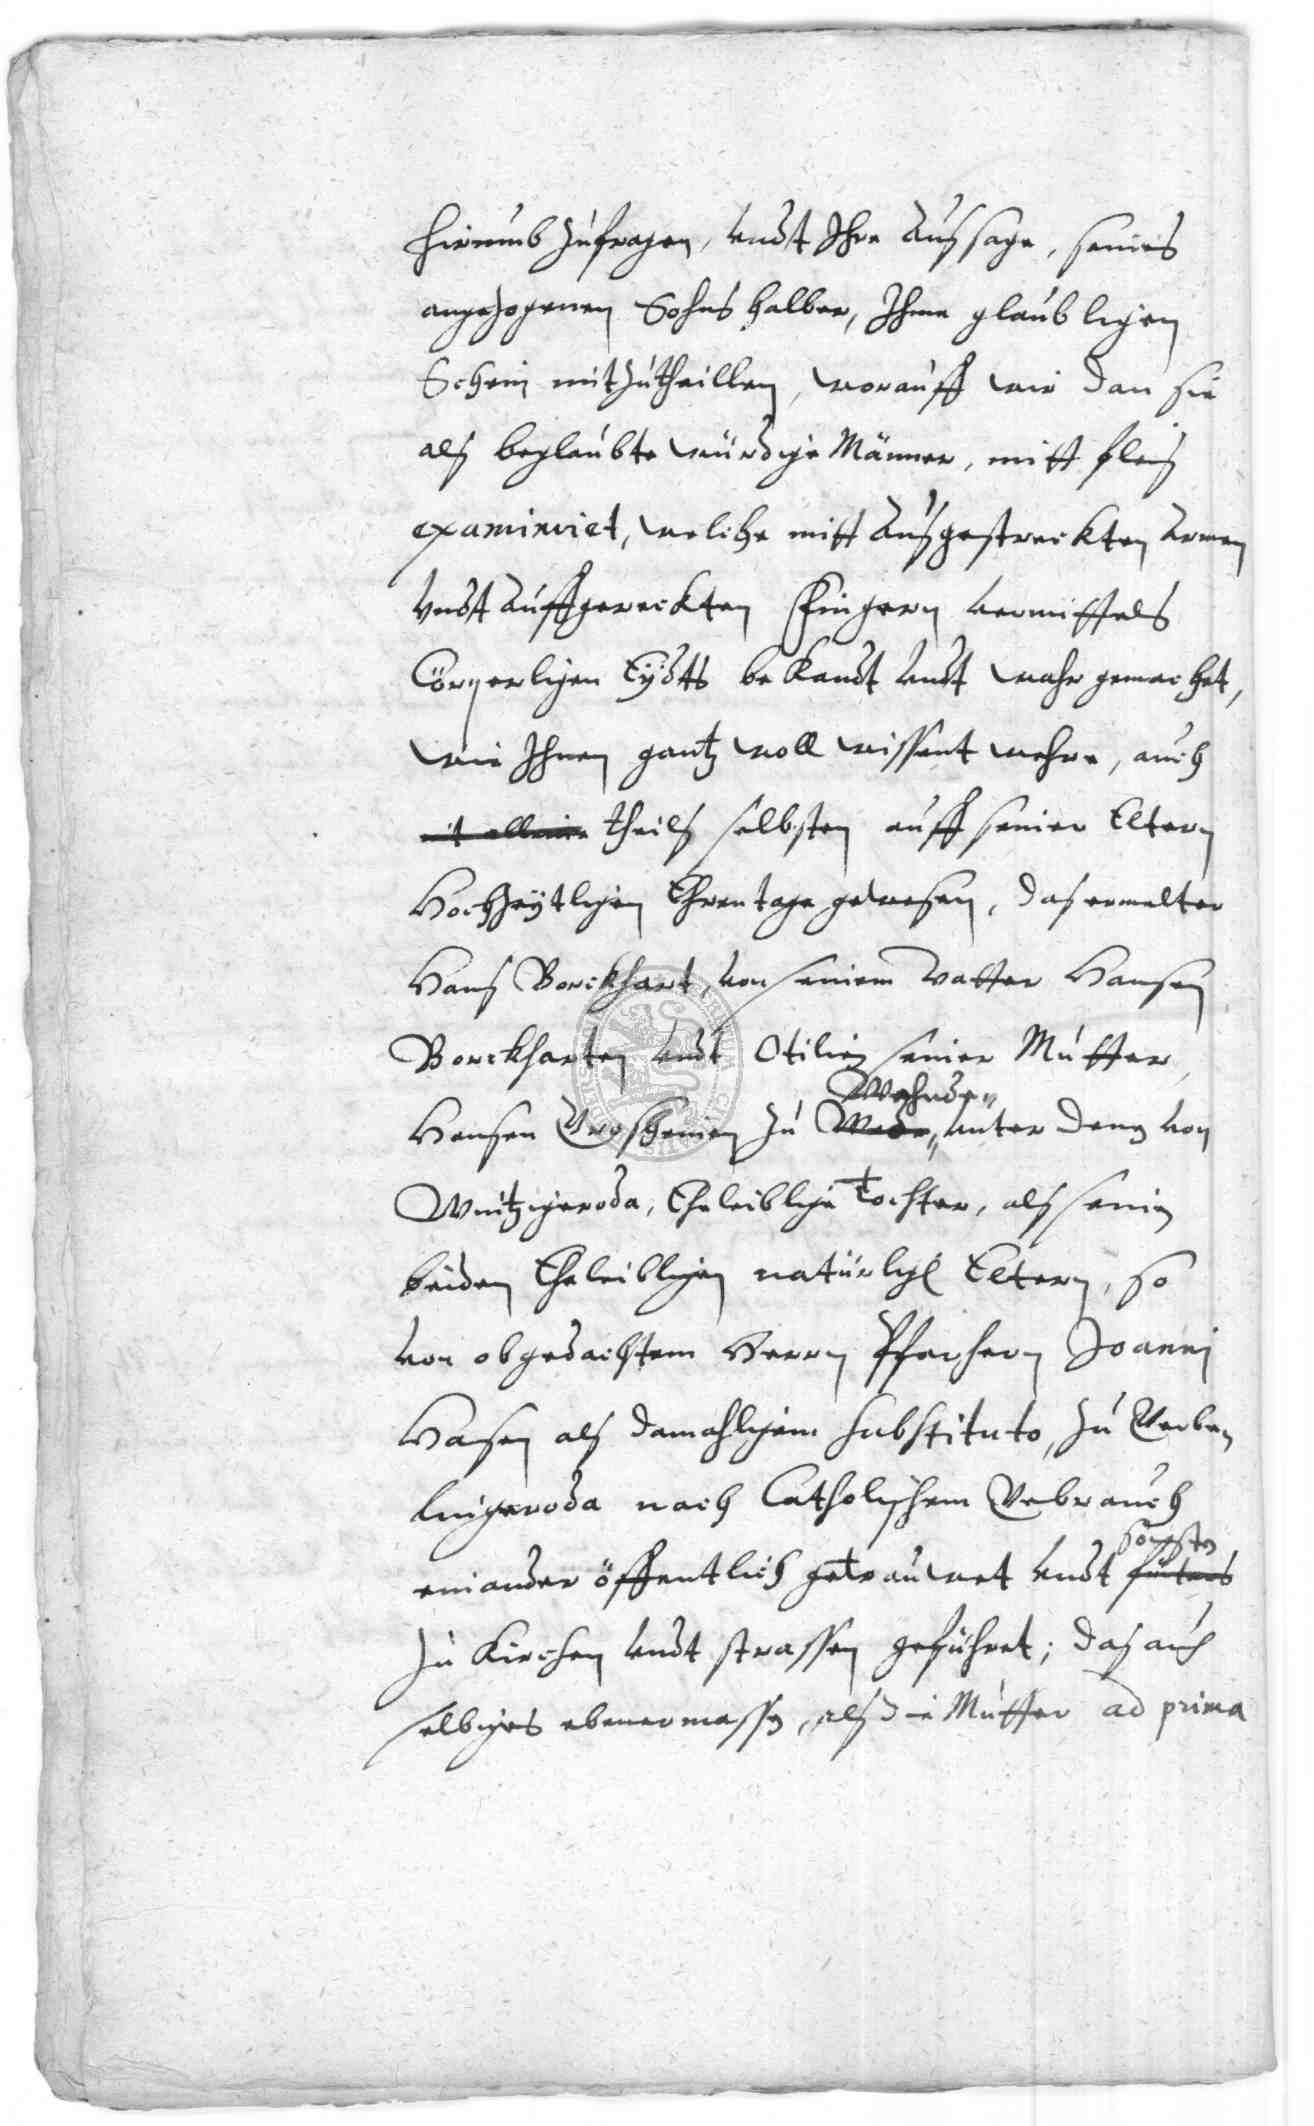 hirumb zufragen, vndt Ihre Aussage, seines
angezogenen Sohns halber, Ihme glaubligen
Schein mitzutheillen, worauff wir dan sie
als beglaubte würdige Männer, mitt fleis
examiniret, welche mitt Ausgestreckten Armen
vndt Auffgereckten Fingern vermittels
Cörperligen Eÿdtts bekandt vndt wahr gemachet,
wie Ihnen gantz woll wissent wehre, auch
theils selbsten auff seiner Eltern
Hochzeÿtligen Ehrentage gewesen, das ermelter
Hans Borckhart, von seinem Vatter Hansen
Borckharten vndt Otilien seiner Mutter,
Wehnde
Hansen zu Wede, vnter denen von
Wintzigeroda, Eheleiblige Tochter, als seinen
beiden Eheleibligen natürligen Eltern, so
von obgedachtem Herrn Pfarhern Joanni
Hasen als damahligem substituto, zu Berben
lingeroda nach Catholischem Gebrauch
sonsten
einander öffentlich getrauwet vndt
zu Kirchen vndt strassen geführet; das auch
selbiges ebenermassen, als die Mutter ad prima